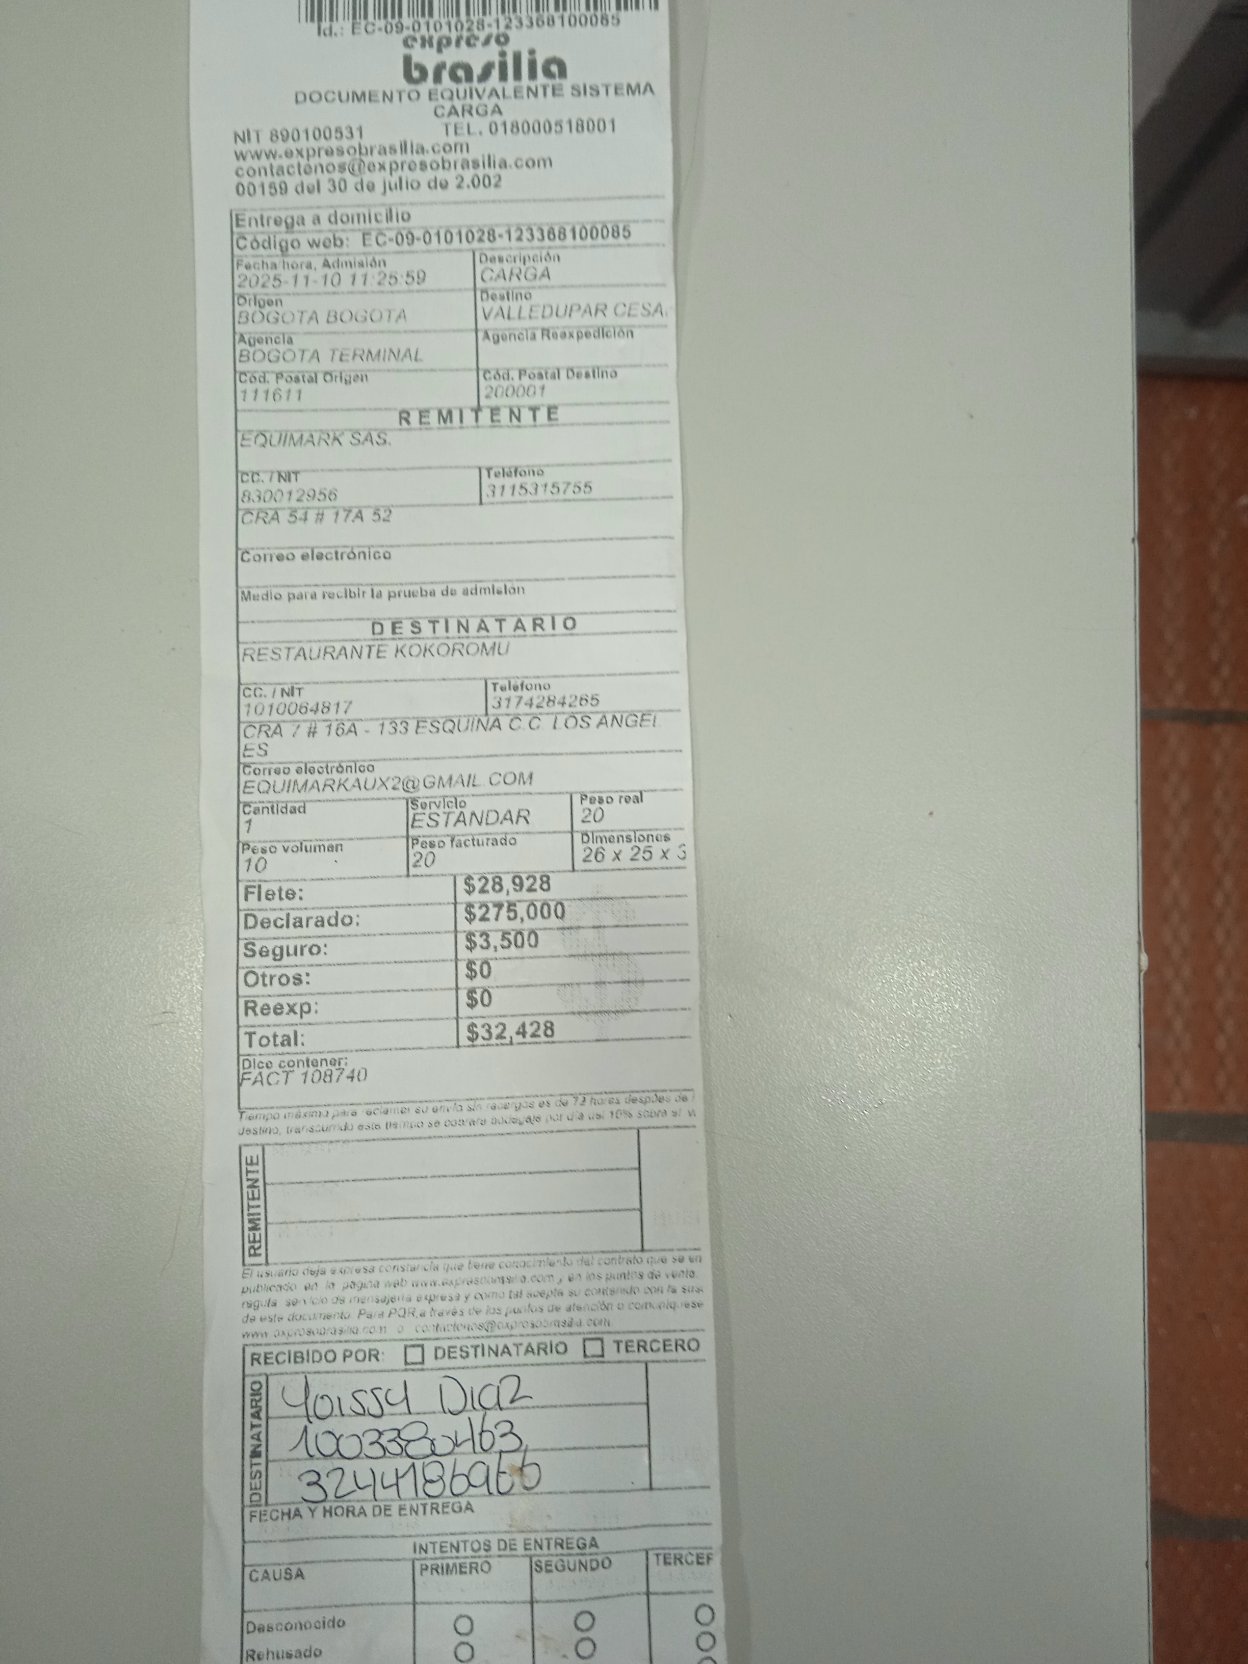 Id.: EC-09-0101028-123368100085
expreso
brasilia
DOCUMENTO EQUIVALENTE SISTEMA
CARGA
NIT 890100531 TEL. 018000518001
www.expresobrasilia.com
contactenos@expresobrasilia.com
00159 del 30 de julio de 2.002
Entrega a domicilio
Código web: EC-09-0101028-123368100085
Fecha hora, Admisión Descripción
2025-11-10 11:25:59 CARGA
Origen Destino
BOGOTA BOGOTA VALLEDUPAR CESA
Agencia Agencia Reexpedición
BOGOTA TERMINAL
Cód. Postal Origen Cód. Postal Destino
111611 200001
REMITENTE
EQUIMARK SAS.
CC. / NIT Teléfono
830012956 3115315755
CRA 54 # 17A 52
Correo electrónico
Medio para recibir la prueba de admisión
DESTINATARIO
RESTAURANTE KOKOROMU
CC. / NIT Teléfono
1010064817 3174284265
CRA 7 # 16A - 133 ESQUINA C.C. LOS ANGEL
ES
Correo electrónico
EQUIMARKAUX2@GMAIL.COM
Cantidad Servicio Peso real
1 ESTANDAR 20
Peso volumen Peso facturado Dimensiones
10 20 26 x 25 x
Flete: $28,928
Declarado: $275,000
Seguro: $3,500
Otros: $0
Reexp: $0
Total: $32,428
Dice contener:
FACT 108740
Tiempo máximo para reclamar su envío sin recargos es de 72 horas después de
destino, transcurrido este tiempo se cobrará bodegaje por día del 10% sobre el
REMITENTE
El usuario deja expresa constancia que tiene conocimiento del contrato que se en
publicado en la pagina web www.expresobrasilia.com y en los puntos de venta,
regula servicio de mensajería expresa y como tal acepta su contenido con la sus
de este documento. Para PQR a través de los puntos de atención o comuniquese
www.expresobrasilia.com o contactenos@expresobrasilia.com
RECIBIDO POR: DESTINATARIO TERCERO
DESTINATARIO
Yoissy Diaz
1003380463
3244186966
FECHA Y HORA DE ENTREGA
INTENTOS DE ENTREGA
CAUSA PRIMERO SEGUNDO TERCER
Desconocido
Rehusado